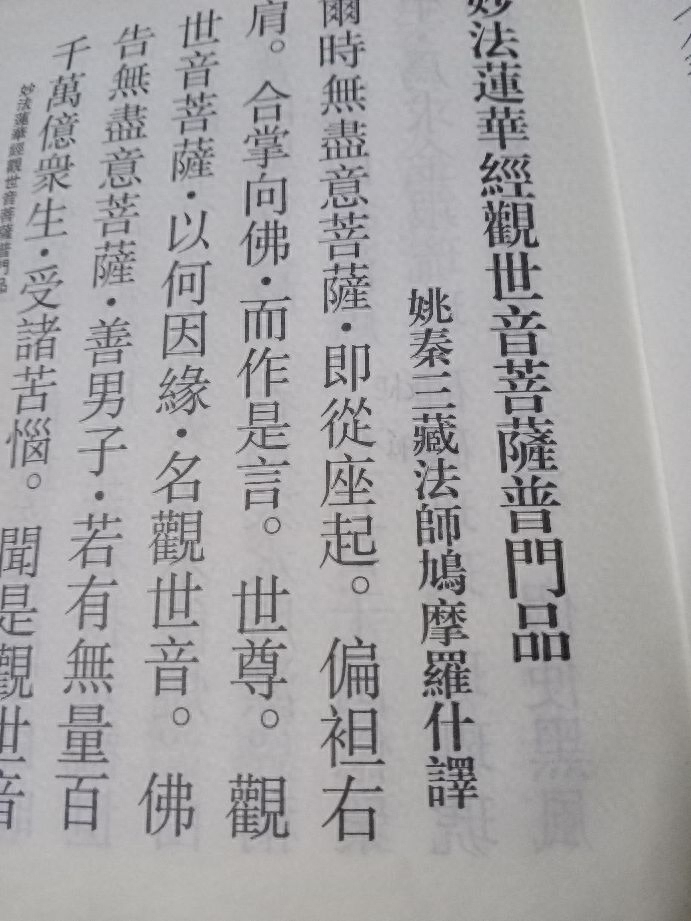 妙法蓮華經觀世音菩薩普門品
姚秦三藏法師鳩摩羅什譯
爾時無盡意菩薩·即從座起。偏袒右
肩。合掌向佛·而作是言。世尊。觀
世音菩薩·以何因緣·名觀世音。佛
告無盡意菩薩·善男子·若有無量百
千萬億衆生·受諸苦惱。聞是觀世音
妙法蓮華經觀世音菩薩普門品